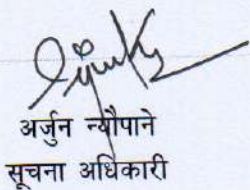 अर्जुन न्यौपाने
सूचना अधिकारी